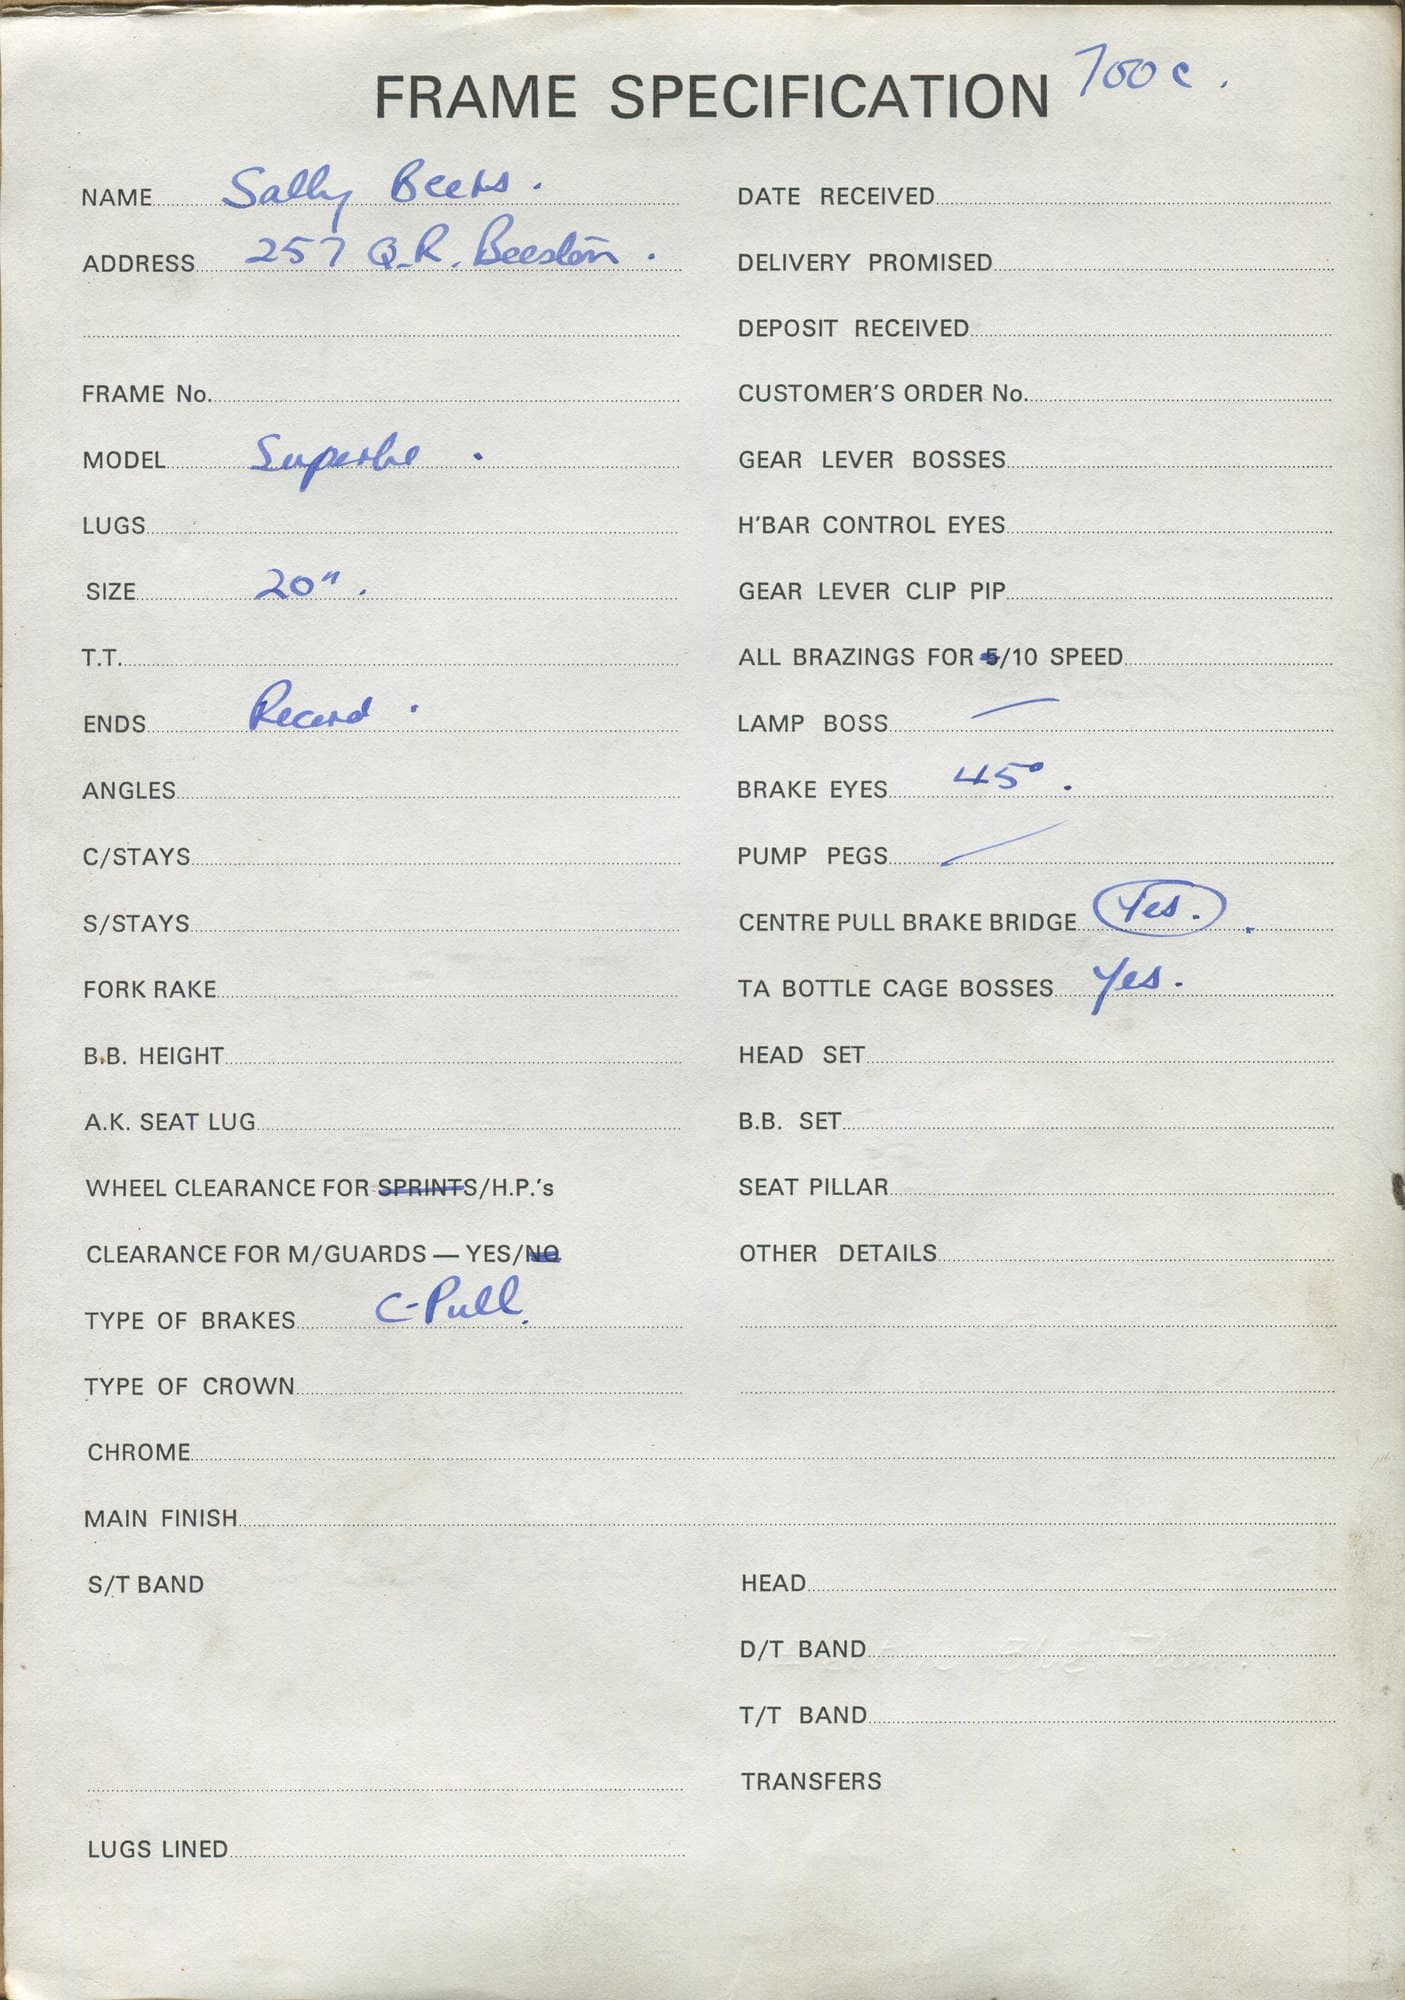 FRAME SPECIFICATION 700c.
NAME Sally Beers.
ADDRESS 257 Q.R. Beeston.
FRAME No.
MODEL Superbe.
LUGS
SIZE 20".
T.T.
ENDS Record.
ANGLES
C/STAYS
S/STAYS
FORK RAKE
B.B. HEIGHT
A.K. SEAT LUG
WHEEL CLEARANCE FOR SPRINTS/H.P.'s
CLEARANCE FOR M/GUARDS — YES/NO
TYPE OF BRAKES C-Pull.
TYPE OF CROWN
DATE RECEIVED
DELIVERY PROMISED
DEPOSIT RECEIVED
CUSTOMER'S ORDER No.
GEAR LEVER BOSSES
H'BAR CONTROL EYES
GEAR LEVER CLIP PIP
ALL BRAZINGS FOR 5/10 SPEED
LAMP BOSS —
BRAKE EYES 45°.
PUMP PEGS —
CENTRE PULL BRAKE BRIDGE Yes.
TA BOTTLE CAGE BOSSES Yes.
HEAD SET
B.B. SET
SEAT PILLAR
OTHER DETAILS
CHROME
MAIN FINISH
S/T BAND
LUGS LINED
HEAD
D/T BAND
T/T BAND
TRANSFERS